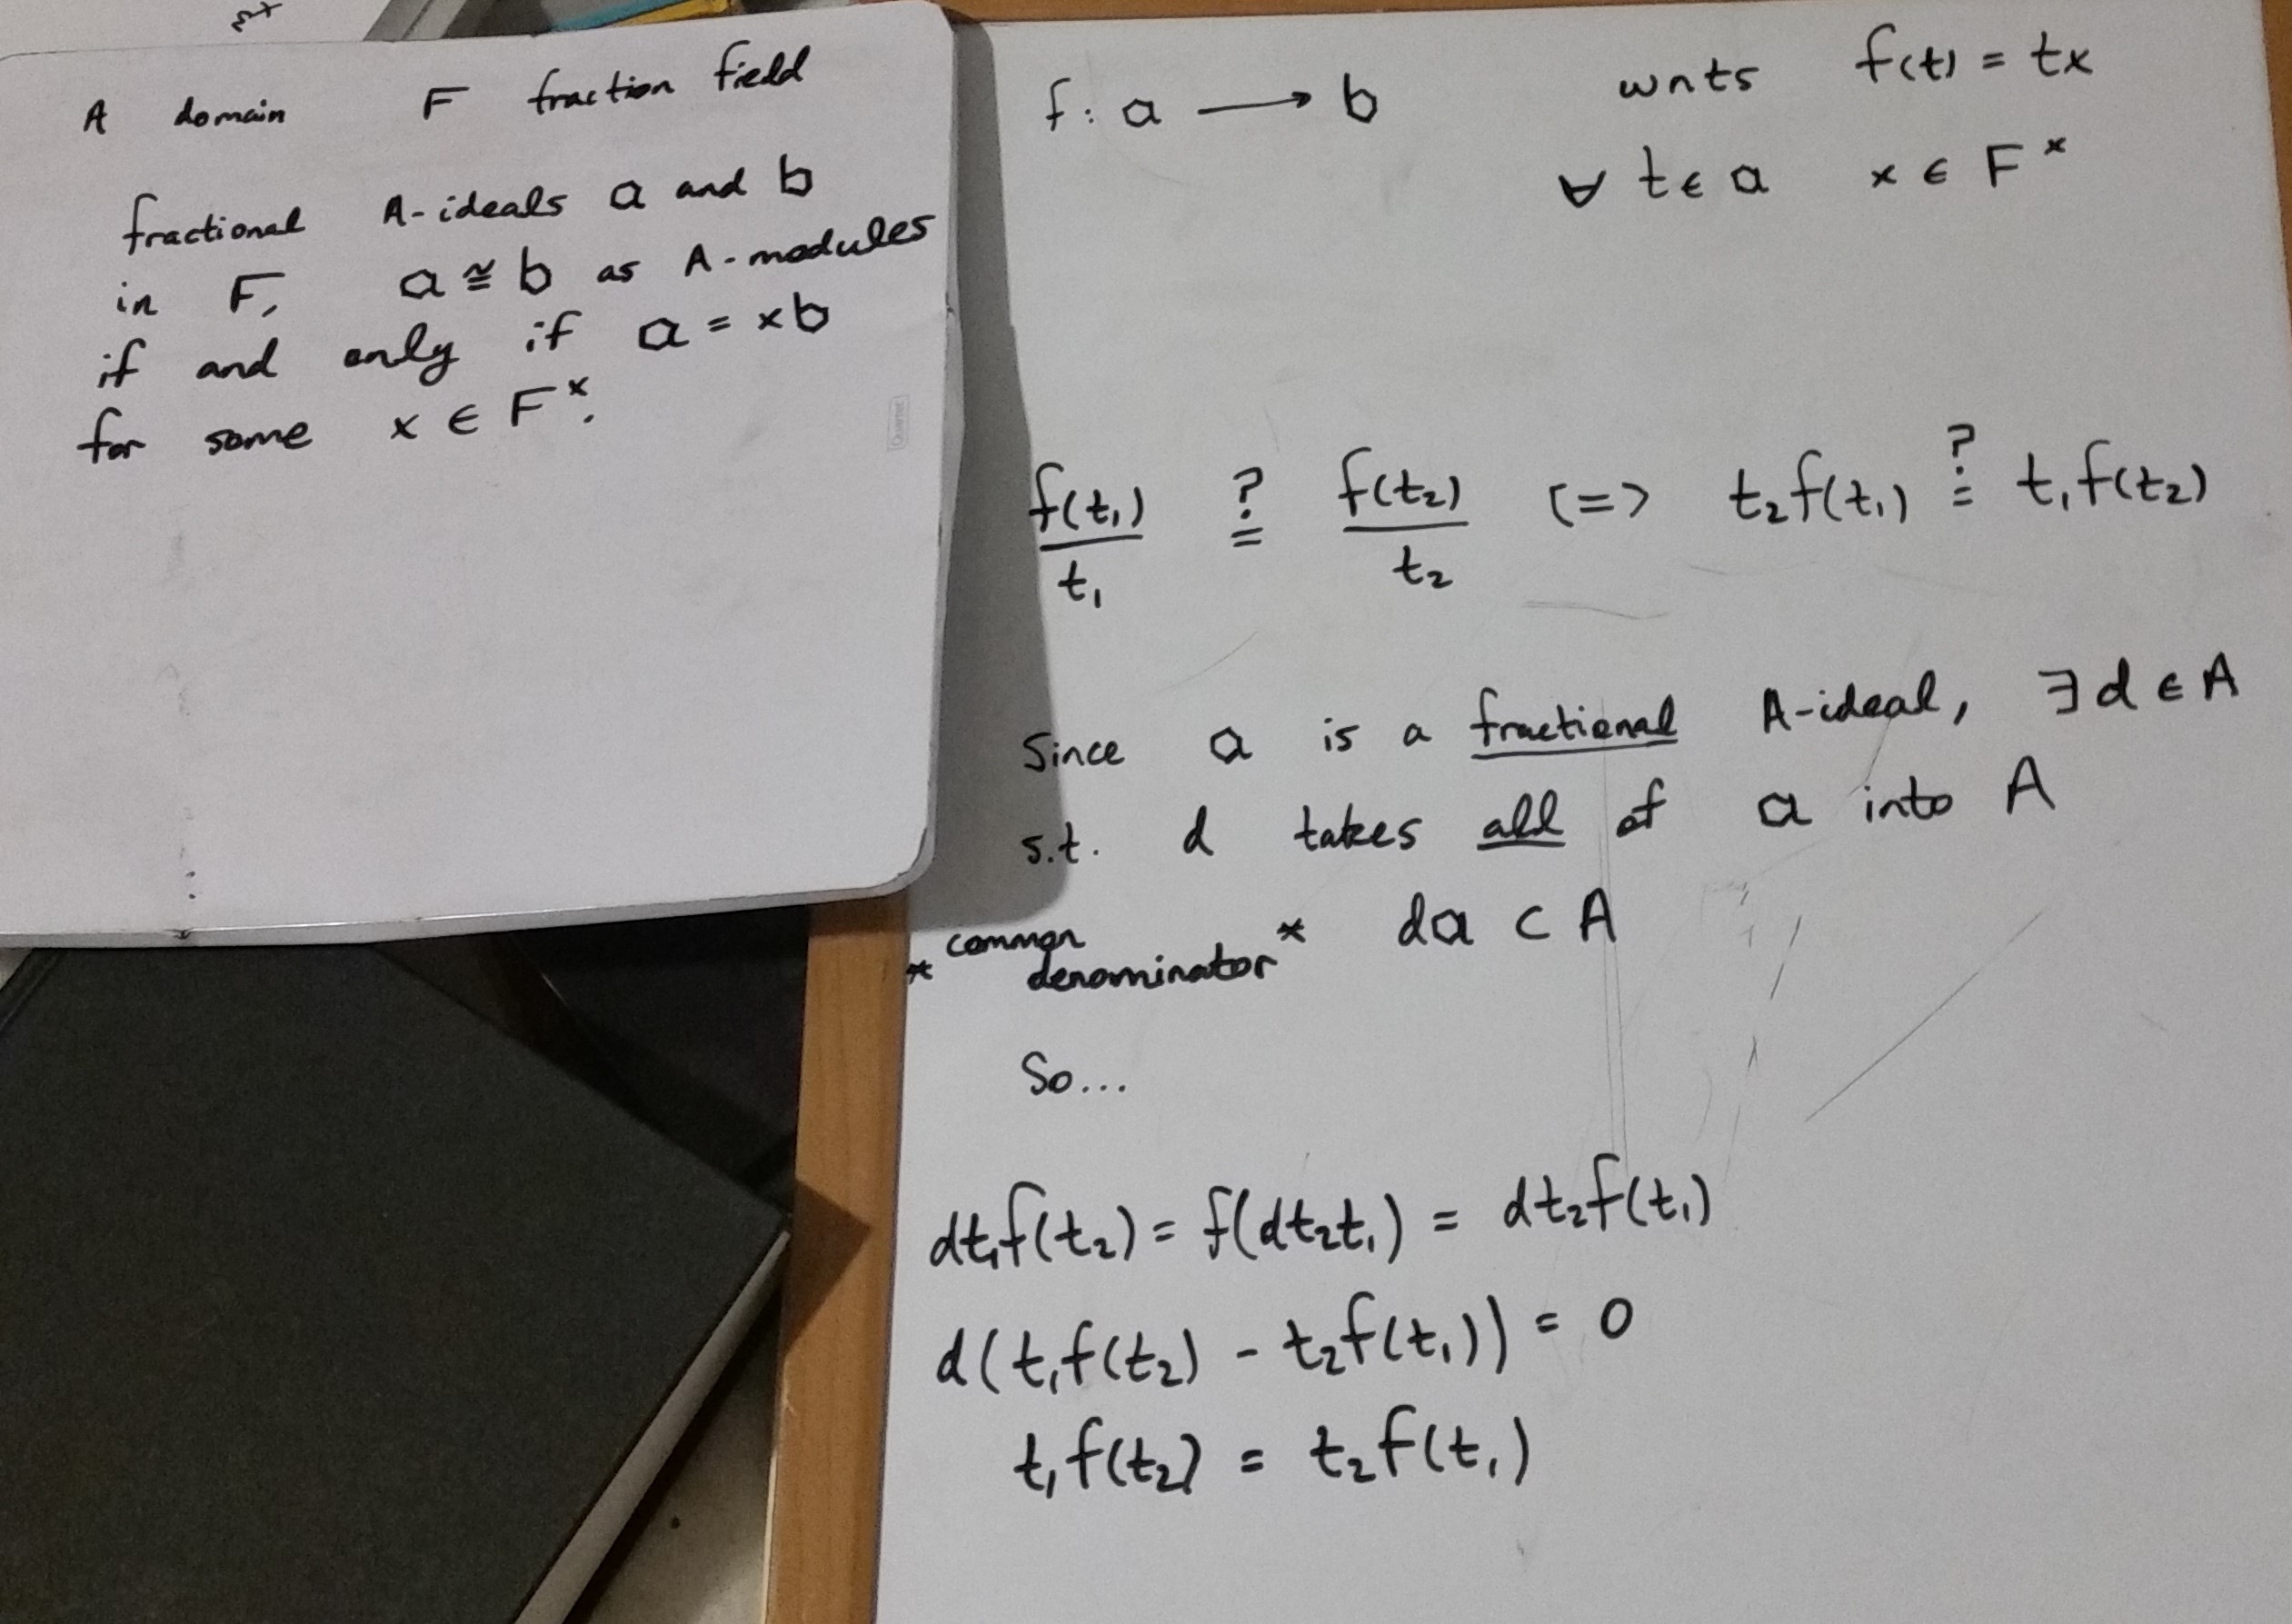 A domain F fraction field
fractional A-ideals a and b
in F, a ≅ b as A-modules
if and only if a = xb
for some x ∈ F^x.
Quartet
f: a ⟶ b wnts f(t) = tx
∀ t ∈ a x ∈ F^x
f(t₁)/t₁ ≟ f(t₂)/t₂ <=> t₂f(t₁) ≟ t₁f(t₂)
Since a is a fractional A-ideal, ∃ d ∈ A
s.t. d takes all of a into A
* common denominator * da ⊂ A
So...
dt₁f(t₂) = f(dt₂t₁) = dt₂f(t₁)
d(t₁f(t₂) - t₂f(t₁)) = 0
t₁f(t₂) = t₂f(t₁)